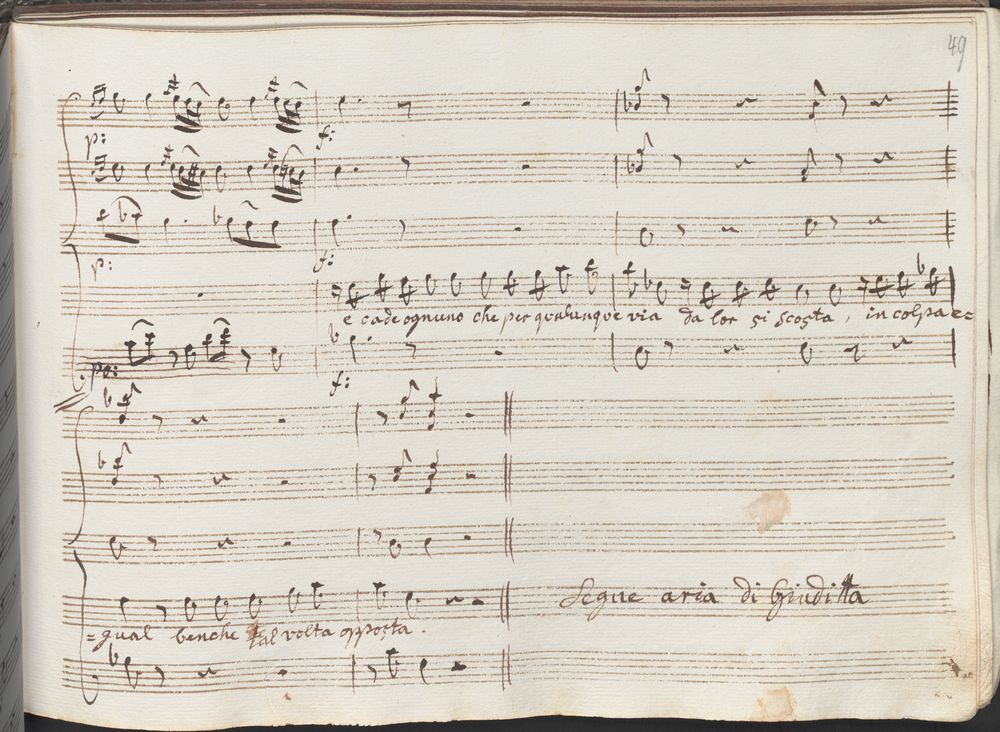 49
p:
f:
p:
f:
e cade ognuno che per qualunque via da lor si scosta, in colpa e=
po:
f:
Segue aria di Giuditta
=gual benche tal volta opposta.